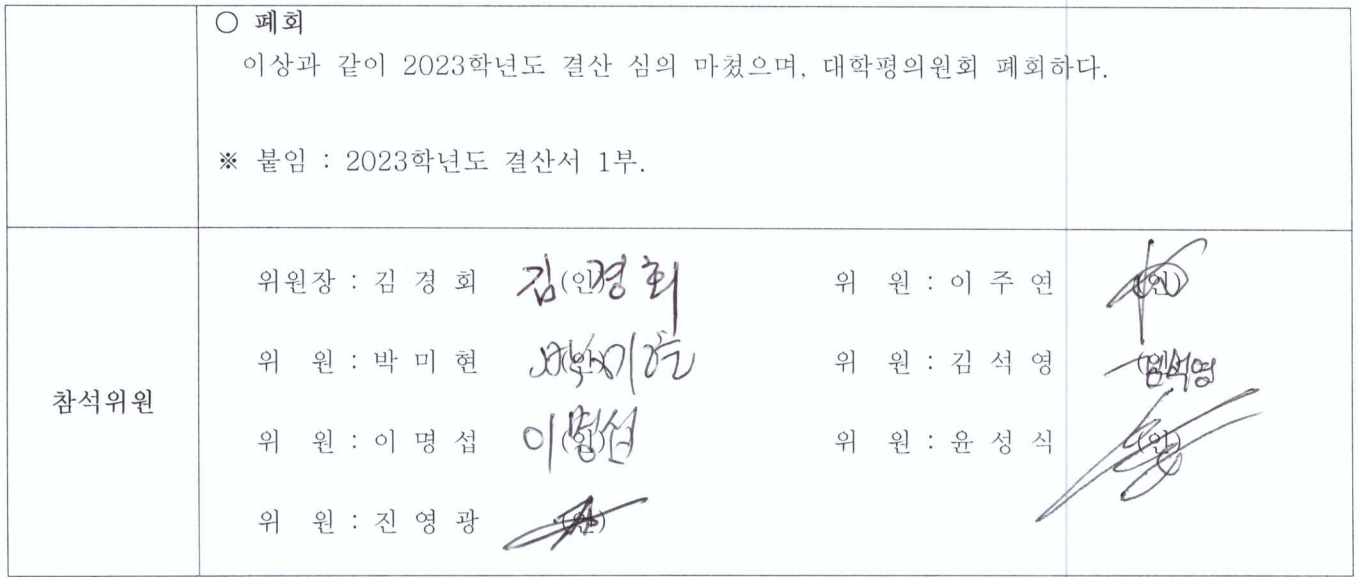 ○ 폐회
이상과 같이 2023학년도 결산 심의 마쳤으며, 대학평의원회 폐회하다.
※ 붙임 : 2023학년도 결산서 1부.
참석위원
위원장 : 김 경 회 (인) 김경회 위 원 : 이 주 연 (인)
위 원 : 박 미 현 (인) 위 원 : 김 석 영 (인)
위 원 : 이 명 섭 (인) 이명섭 위 원 : 윤 성 식 (인)
위 원 : 진 영 광 (인)